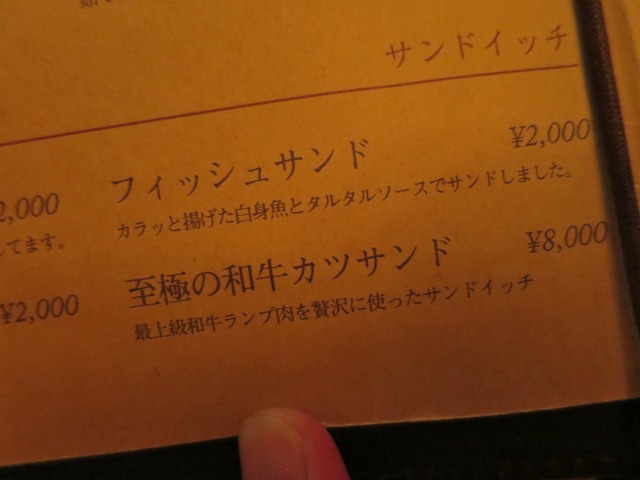 サンドイッチ
フィッシュサンド ¥2,000
カラッと揚げた白身魚とタルタルソースでサンドしました。
至極の和牛カツサンド ¥8,000
最上級和牛ランプ肉を贅沢に使ったサンドイッチ
2,000
してます。
¥2,000